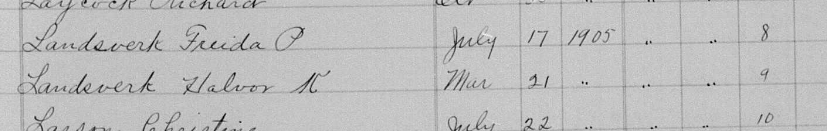 Laycock Richard
Landsverk Freida P July 17 1905 " " 8
Landsverk Halvor K Mar 21 " " " 9
Larson Christine July 22 " " " 10